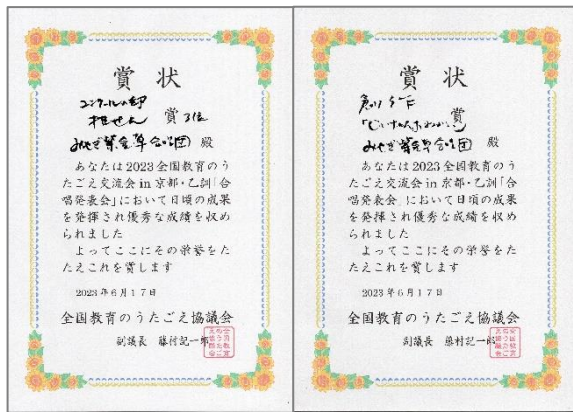 賞状
コンクールの部
推せん 賞 3位
みやぎ紫金草合唱団 殿
あなたは2023全国教育のう
たごえ交流会in京都・乙訓「合
唱発表会」において日頃の成果
を発揮され優秀な成績を収め
られました
よってここにその栄誉をた
たえこれを賞します
2023年6月17日
全国教育のうたごえ協議会
副議長 藤村記一郎
賞状
創作
賞
みやぎ紫金草合唱団 殿
あなたは2023全国教育のう
たごえ交流会in京都・乙訓「合
唱発表会」において日頃の成果
を発揮され優秀な成績を収め
られました
よってここにその栄誉をた
たえこれを賞します
2023年6月17日
全国教育のうたごえ協議会
副議長 藤村記一郎